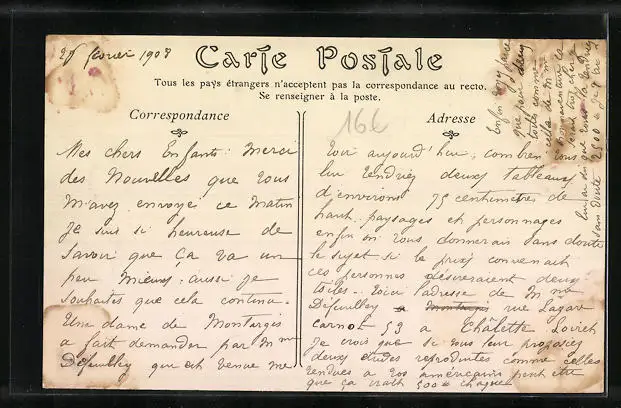 25 février 1908
Carte Postale
Tous les pays étrangers n'acceptent pas la correspondance au recto.
Se renseigner à la poste.
Correspondance
Mes chers Enfants. Merci
des Nouvelles que vous
m'avez envoyé ce matin
je suis si heureuse de
savoir que ça va un
peu mieux. aussi je
souhaites que cela continu.
Une dame de Montargis
a fait demander par Mme
Défeulley qui est venue me
166
Adresse
voir aujourd'hui, combien vous
lui vendriez deux tableaux
d'environs 75 centimètres de
haut. paysages et personnages
enfin on vous donnerais sans doute
le sujet si le prix convenait
ces personnes désireraient deux
toiles. voici l'adresse de Mme
Défeulley a Montargis rue Lazare
carnot 59 a Châlette Loiret
je crois que si vous leur proposiez
deux études reproduites comme celles
vendues a vos américains peut être
que ça irait 500 chaque
Enfin
que pour deux
toiles comme
cela de Mme
sans doute 2500